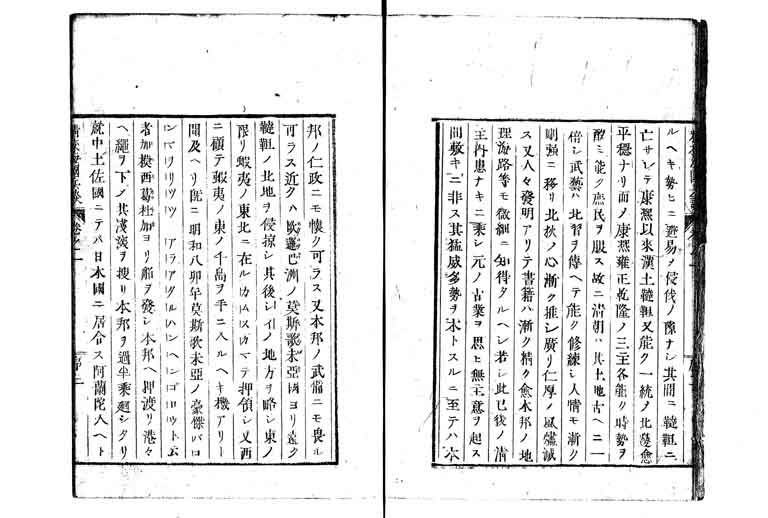 ルヘキ勢ヒニ 避易メ侵伐ノ隙ナシ其間ニ韃靼ニ
亡サレテ康熙以來漢土韃靼又能ク一統ノ北蔓愈
平穩ナリ而ノ康熙雍正乾隆ノ三主各能ク時勢ヲ
ミ能ク庶民ヲ服ス故ニ清朝ハ其土地古ヘニ一
倍シ武藝ハ北習ヲ傳ヘテ能ク修練シ人情モ漸ク
剛強ニ移リ北狄ノ心漸ク推シ廣リ仁厚ノ風
ス又人々發明アリテ書籍ハ漸ク精ク愈本邦ノ地
理海路等モ微細ニ知得タルヘシ若シ此已後ノ清
主内患ナキニ乘シ元ノ古業ヲ思ヒ無主意ヲ起ス
間敷キニ非ス其猛威多勢ヲ本トスルニ至テハ本
邦ノ仁政ニモ懷ク可ラス又本邦ノ武備ニモ畏ル
可ラス近クハ歐邏巴洲ノ莫斯歌未亞國ヨリ遠ク
韃靼ノ北地ヲ侵掠シ其後シイノ地方ヲ略シ東ノ
限リ蝦夷ノ東北ニ在ルカムスカマテ押領シ又西
ニ顧テ蝦夷ノ東ノ千島ヲ手ニ入ルヘキ機アリト
聞及ヘリ既ニ明和八卯年莫斯歌未亞ノ豪傑バロ
ンマヲリツツ アラアダルハンヘンゴロウト云
者加模西葛杜加ヨリ船ヲ發シ本邦ヘ押渡リ港々
ヘ繩ヲ下ノ其淺深ヲ搜リ本邦ヲ過半乘廻シタリ
就中土佐國ニテハ日本國ニ居合ス阿蘭陀人ヘト